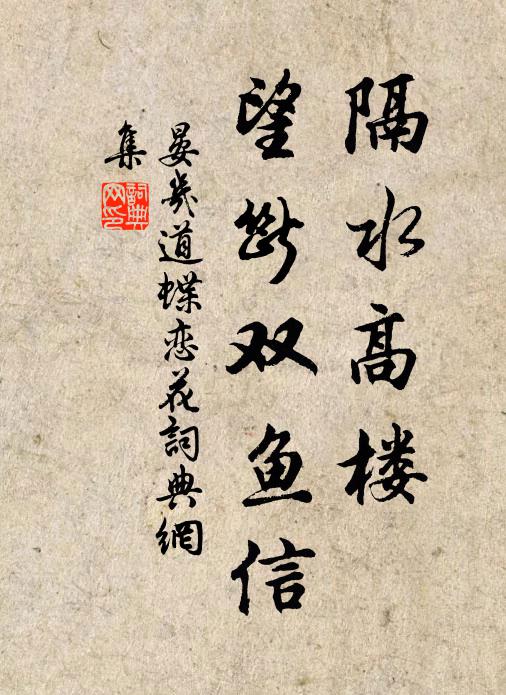 隔水高楼
望断双鱼信
晏几道蝶恋花詞典網
集
詞典网印